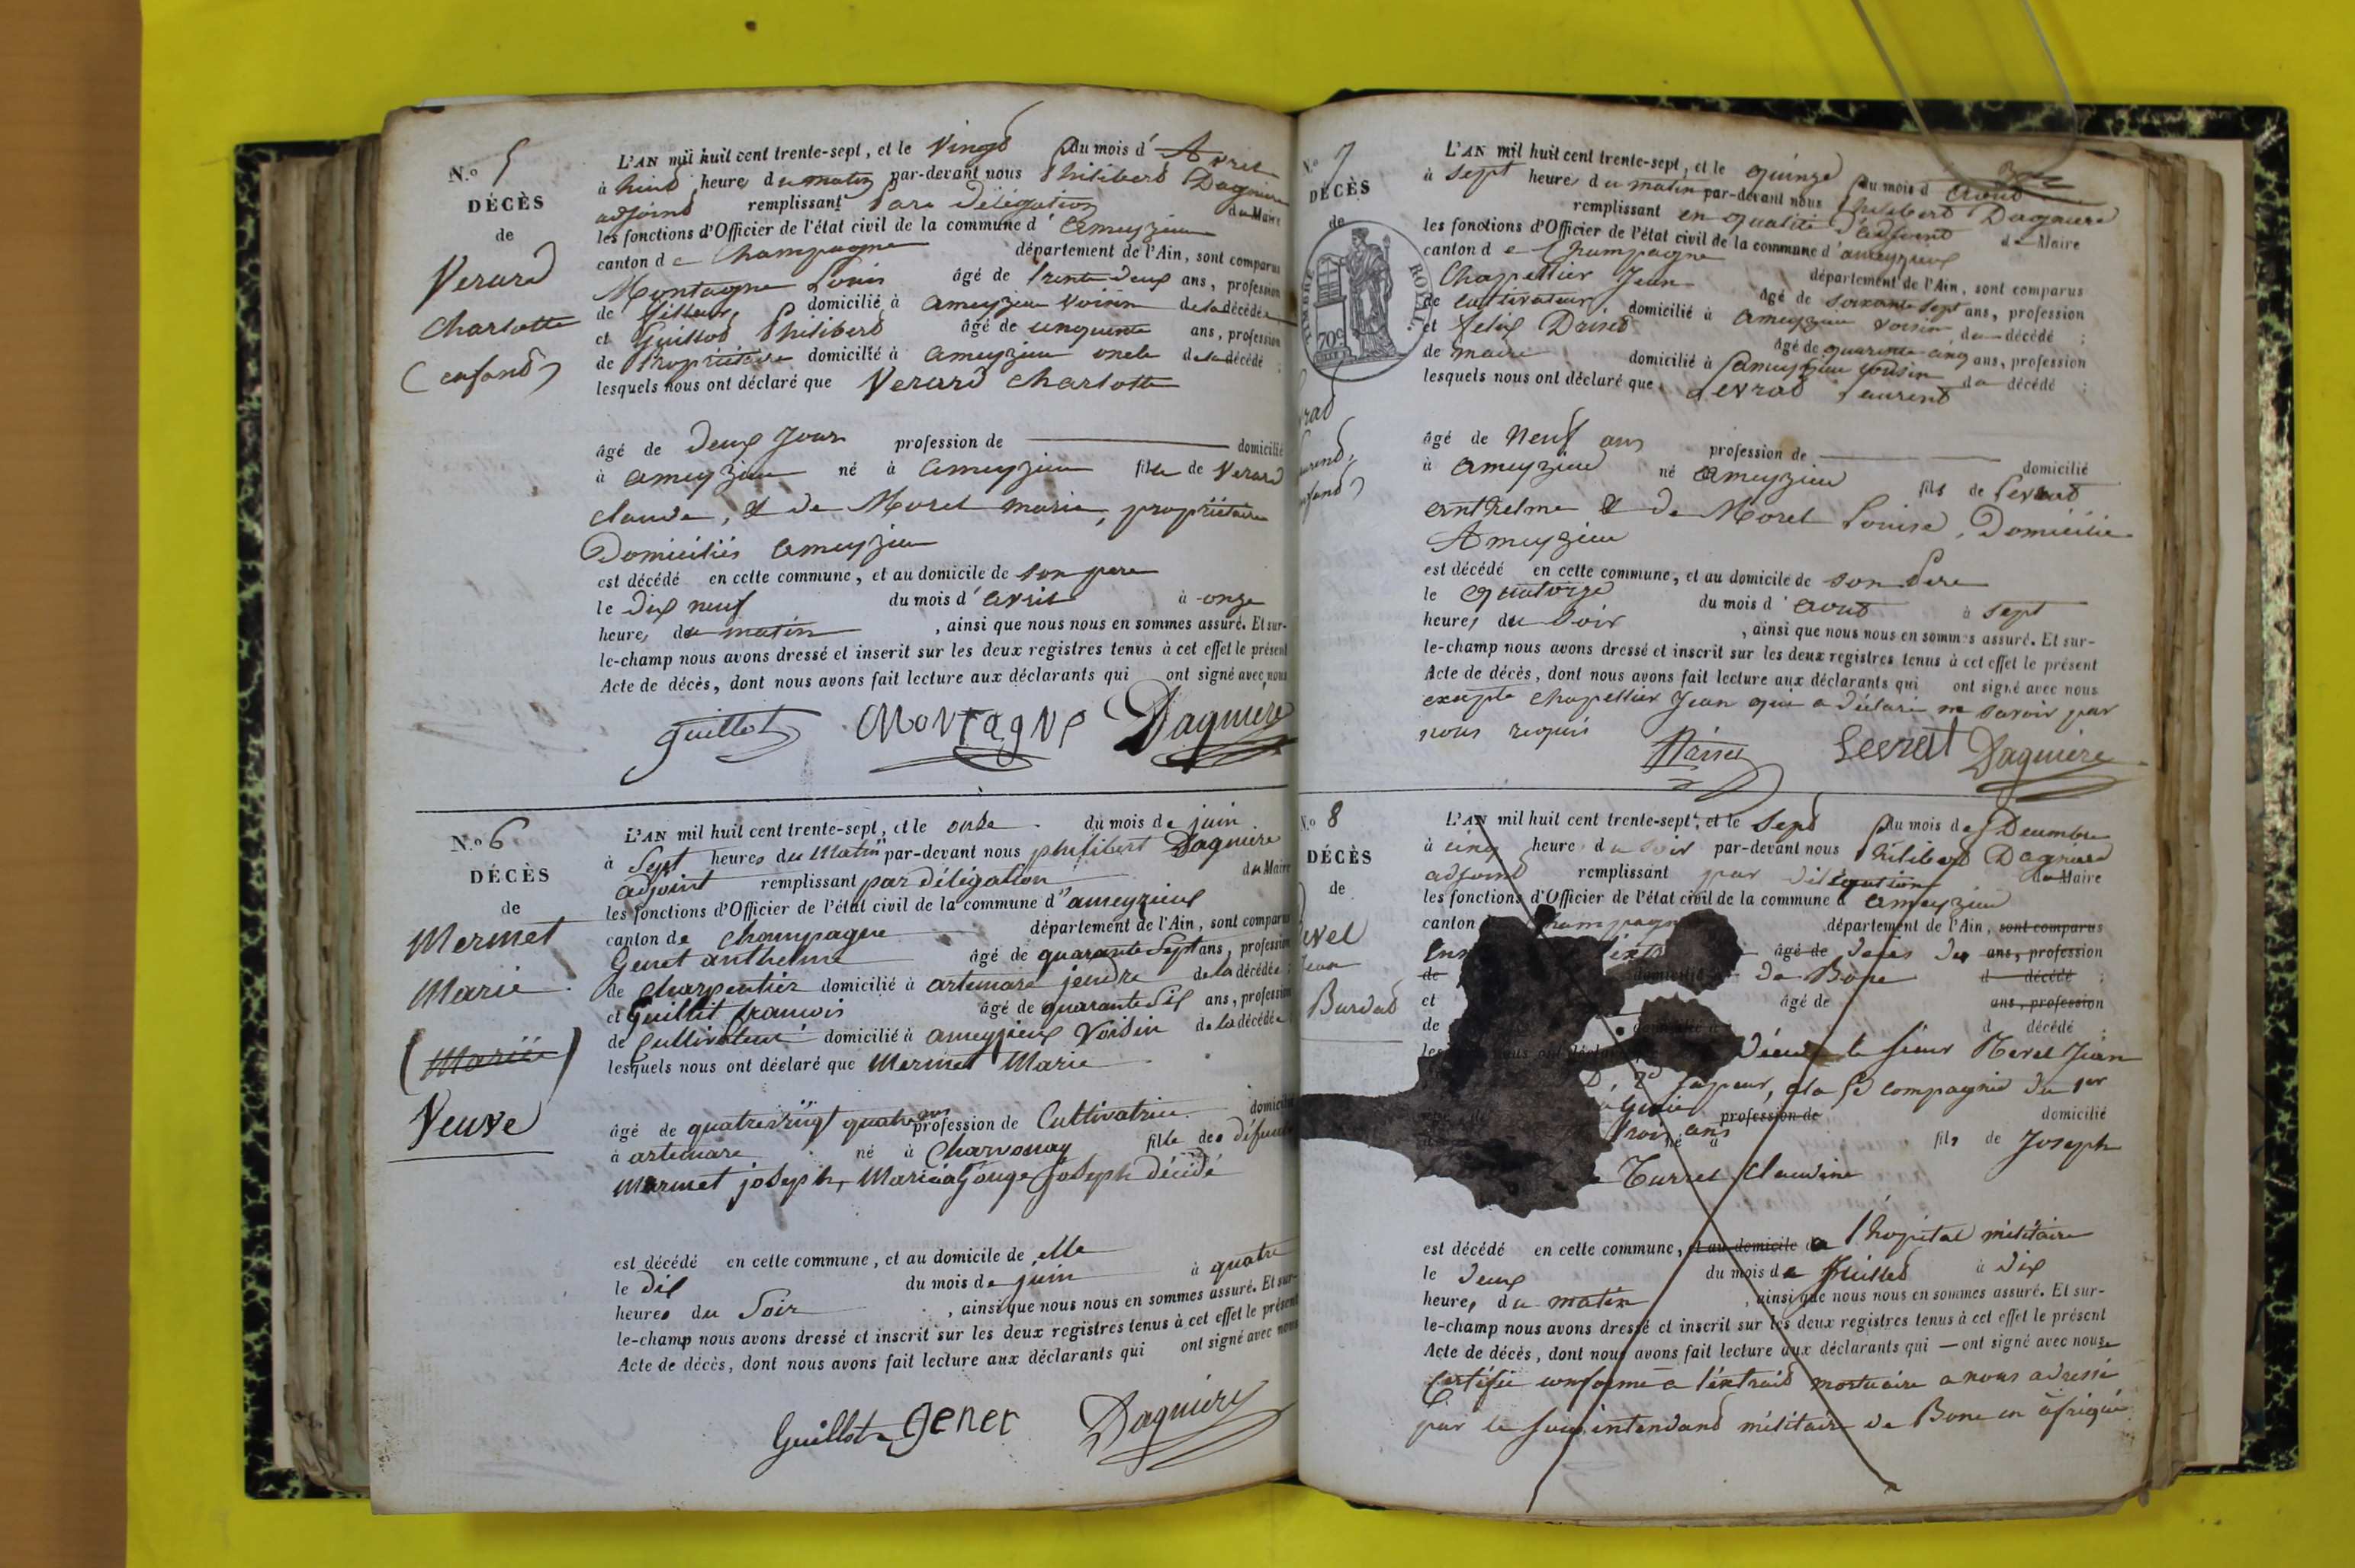 N.o 5
DÉCÈS
de
Verard
Charlotte
(enfant)
L'AN mil huit cent trente-sept, et le vingt du mois d'Avril
à huit heures du matin par-devant nous Philibert Dagniere
adjoint remplissant par délégation du Maire
les fonctions d'Officier de l'état civil de la commune d'ameyzieu
canton de Champagne département de l'Ain, sont comparus
Montagne Louis âgé de trente deux ans, profession
de domicilié à ameyzieu voisin de la décédée
et Guillot Philibert âgé de cinquante ans, profession
de Propriétaire domicilié à ameyzieu oncle de la décédé ;
lesquels nous ont déclaré que Verard Charlotte
âgé de deux Jour profession de domicilié
à ameyzieu né à ameyzieu fille de Verard
claude, & de Morel marie, propriétaire
Domiciliés ameyzieu
est décédé en cette commune, et au domicile de son pere
le dix neuf du mois d'avril à onze
heures du matin , ainsi que nous nous en sommes assuré. Et sur-
le-champ nous avons dressé et inscrit sur les deux registres tenus à cet effet le présent
Acte de décès, dont nous avons fait lecture aux déclarants qui ont signé avec nous
Guillot Montagne Dagniere
N.o 6
DÉCÈS
de
Mermet
Marie
(Mariée)
Veuve
L'AN mil huit cent trente-sept, et le onze du mois de juin
à Sept heures du Matin par-devant nous philibert Dagniere
adjoint remplissant par délégation du Maire
les fonctions d'Officier de l'état civil de la commune d'ameyzieux
canton de champagne département de l'Ain, sont comparus
Genet anthelme âgé de quarante Sept ans, profession
de charpentier domicilié à artemare jendre de la décédée ;
et Guillot francois âgé de quarante Six ans, profession
de Cultivateur domicilié à ameyzieux Voisin de la décédée
lesquels nous ont déclaré que Mermet Marie
âgé de quatrevingt quatre ans profession de Cultivatrice domicilié
à artemare né à Charvonay fille des défunts
Mermet joseph, Mariée à Gouge joseph décédé
est décédé en cette commune, et au domicile de elle
le dix du mois de juin à quatre
heures du Soir , ainsi que nous nous en sommes assuré. Et sur-
le-champ nous avons dressé et inscrit sur les deux registres tenus à cet effet le présent
Acte de décès, dont nous avons fait lecture aux déclarants qui ont signé avec nous
Guillot Genet Dagniere
N.o 7
DÉCÈS
de
TIMBRE ROYAL.
70c
L'AN mil huit cent trente-sept, et le quinze du mois d'aout
à sept heures du matin par-devant nous Philibert Dagniere
remplissant en qualité d'adjoint de Maire
les fonctions d'Officier de l'état civil de la commune d'ameyzieux
canton de Champagne département de l'Ain, sont comparus
Chapellier Jean âgé de soixante sept ans, profession
de cultivateur domicilié à ameyzieu voisin du décédé ;
et felix Brisset âgé de quarante cinq ans, profession
de maire domicilié à ameyzieu cousin du décédé ;
lesquels nous ont déclaré que Levrat Laurent
âgé de Neuf ans profession de domicilié
à ameyzieu né ameyzieu fils de Levrat
anthelme & de Morel Louise, Domicilié
Ameyzieu
est décédé en cette commune, et au domicile de son Pere
le quatorze du mois d'aout à sept
heures du soir , ainsi que nous nous en sommes assuré. Et sur-
le-champ nous avons dressé et inscrit sur les deux registres tenus à cet effet le présent
Acte de décès, dont nous avons fait lecture aux déclarants qui ont signé avec nous
excepté chapellier Jean qui a déclaré ne savoir par
nous requis
Levrat Dagniere
N.o 8
DÉCÈS
de
Jean
Burdet
L'AN mil huit cent trente-sept, et le Sept du mois de Decembre
à cinq heures du soir par-devant nous Philibert Dagniere
adjoint remplissant par délégation du Maire
les fonctions d'Officier de l'état civil de la commune d'ameyzieu
canton Champagne département de l'Ain, sont comparus
âgé de décès du ans, profession
de domicilié de Bone d décédé ;
et âgé de ans, profession
de domicilié à d décédé ;
nous ont le sieur Jean
sapeur, a la compagnie du 1er
Génie profession de domicilié
trois ans né à fils de Joseph
Turrel Claudine
est décédé en cette commune, et au domicile de l'hopital militaire
le deux du mois de Juillet à dix
heures du matin , ainsi que nous nous en sommes assuré. Et sur-
le-champ nous avons dressé et inscrit sur les deux registres tenus à cet effet le présent
Acte de décès, dont nous avons fait lecture aux déclarants qui — ont signé avec nous
Certifié conforme a l'extrait mortuaire a nous adressé
par le sous intendant militaire de Bone en afrique